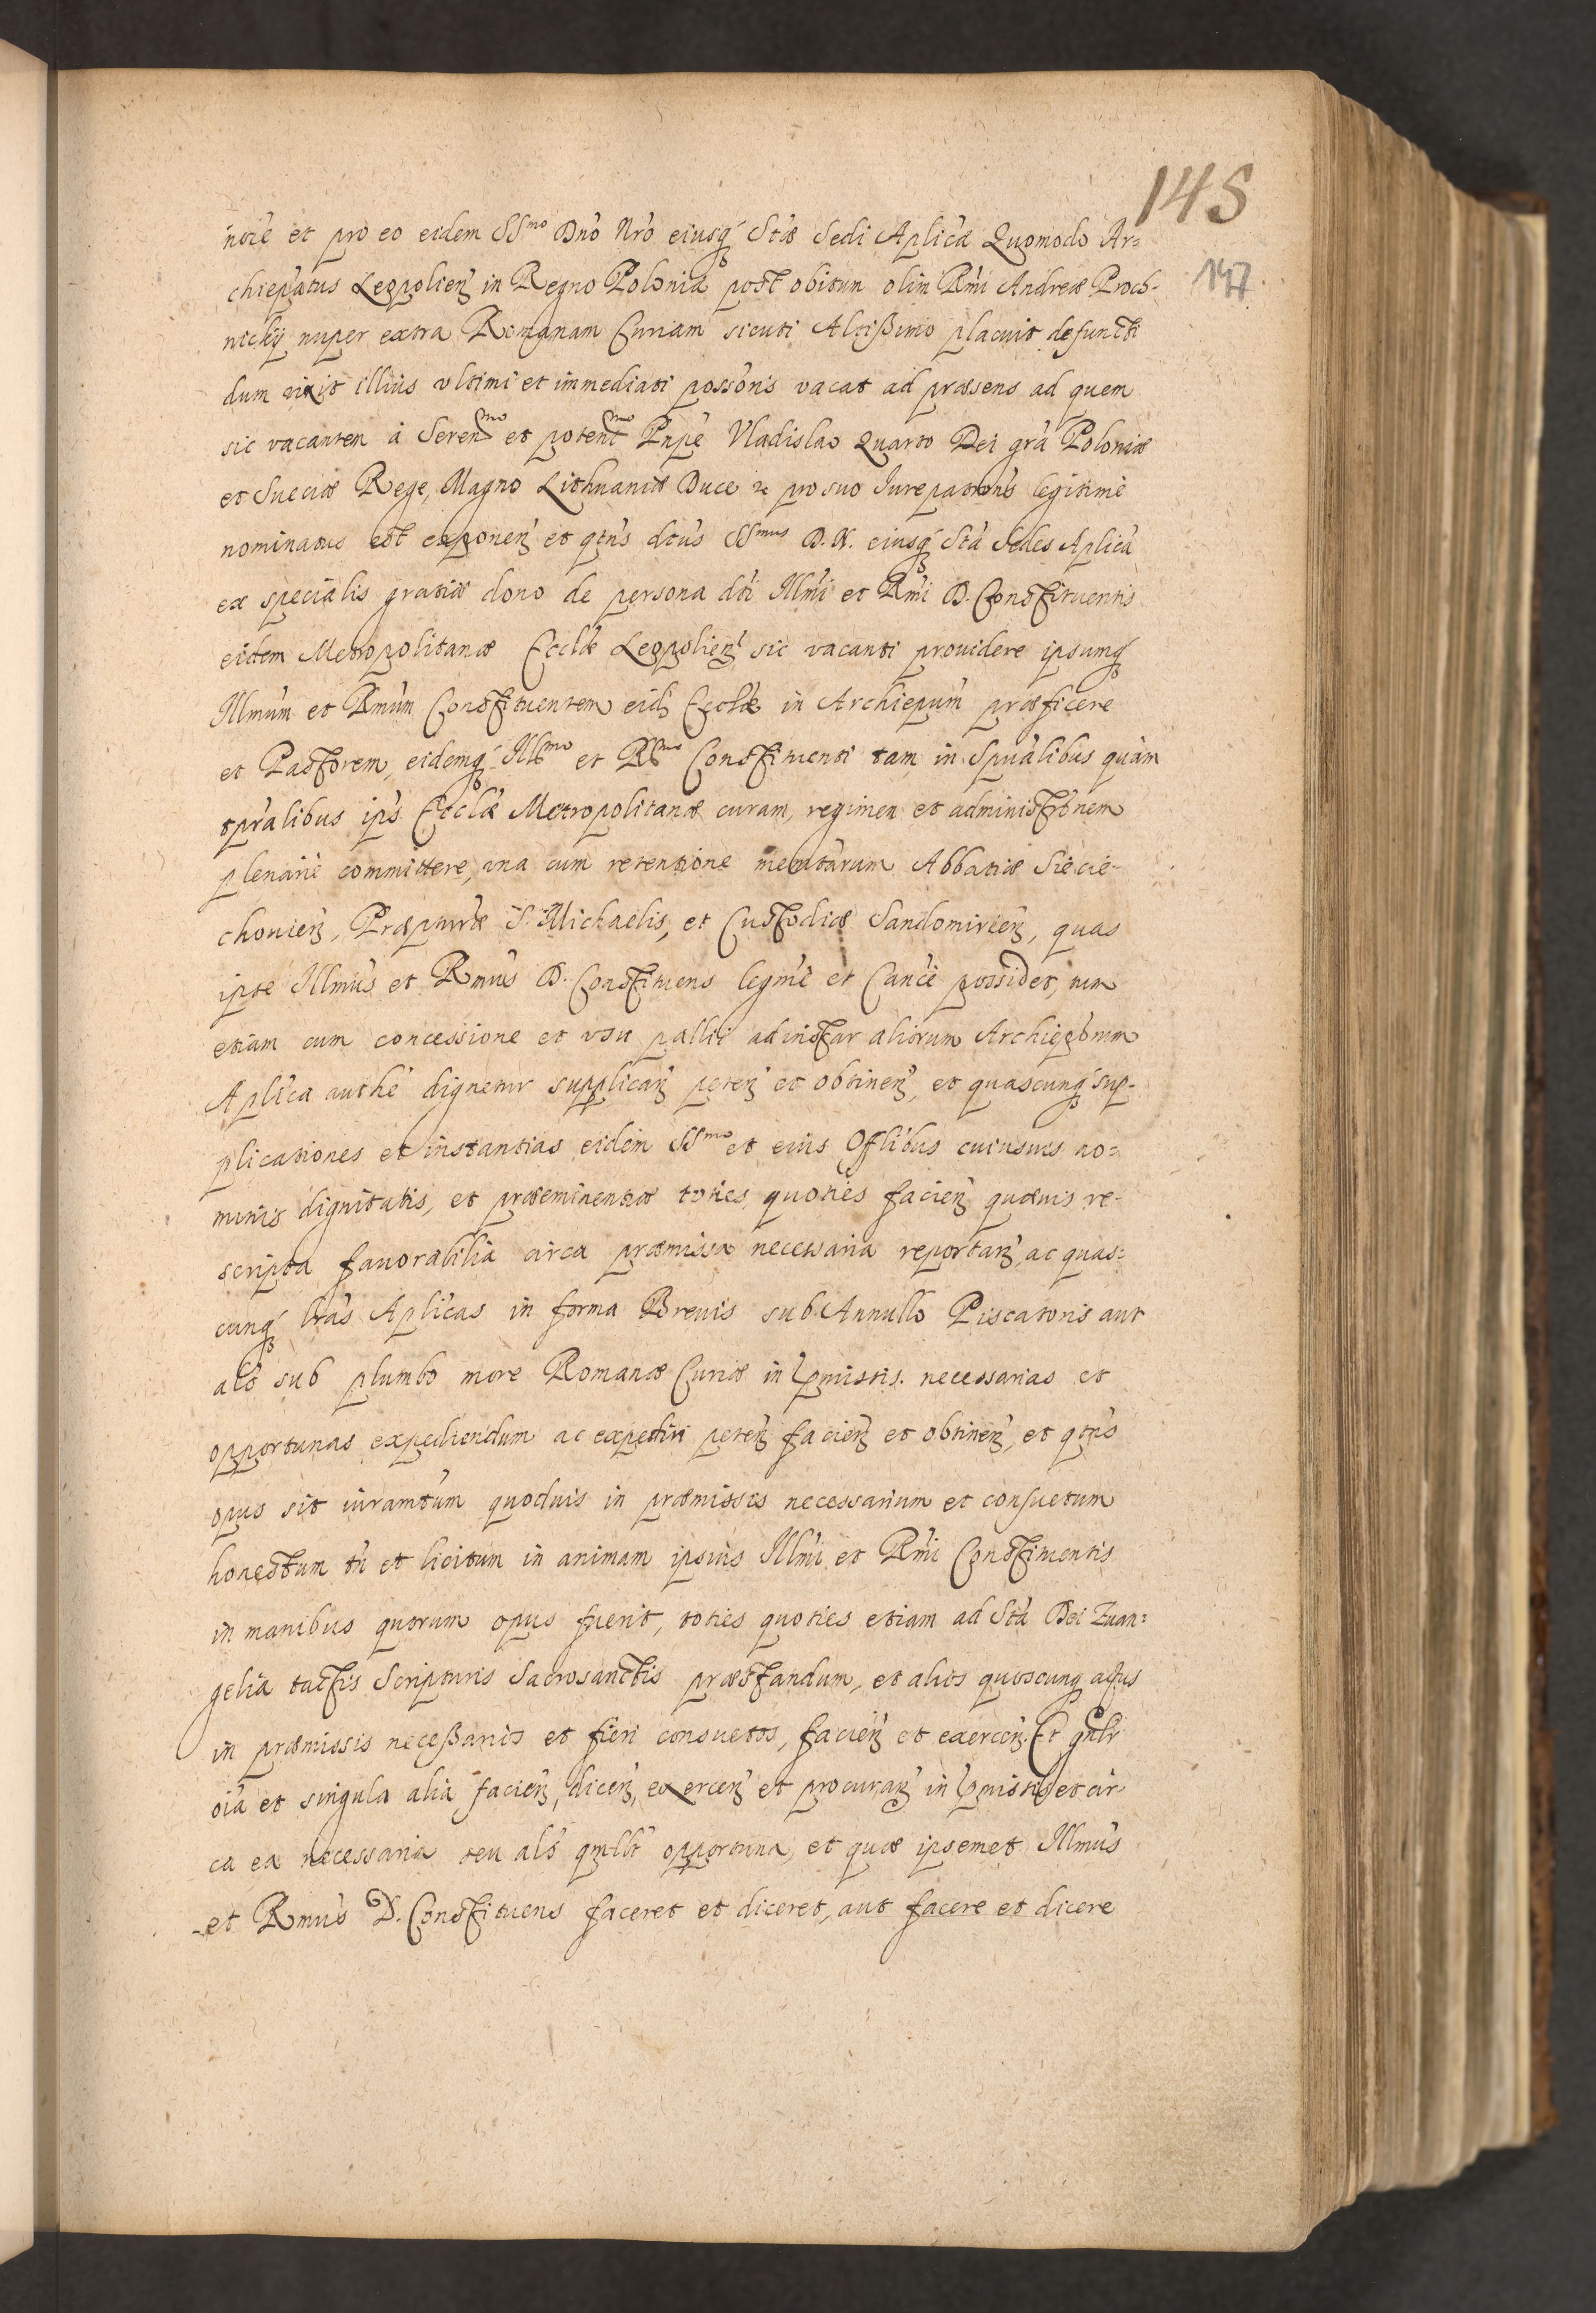 145
147
noīe et pro eo eidem SSmo Dno Nro eiusq Stæ Sedi Aplicæ Quomodo Ar=
chiepatus Leopolien in Regno Poloniæ post obitum olim Rmi Andreæ Proch-
nicky nuper extra Romanam Curiam sicuti Altißimo placuit defuncti
dum vixit illius vltimi et immediati possoris vacat ad præsens ad quem
sic vacantem à Serenmo et potentmo Pnpe Vladislao Quarto Dei gra Poloniæ
et Sueciæ Rege, Magno Lithuaniæ Duce &c pro suo Iurepatrons legitimè
nominatus est exponen et qtns dtus SSmus D. N. eiusq Sta Sedes Aplica
ex specialis gratiæ dono de persona dti Illmi et Rmi D. Constituentis
eidem Metropolitanæ Ecclæ Leopolien sic vacanti prouidere ipsumq
Illmum et Rmum Constituentem eid Ecclæ in Archiepum præficere
et Pastorem, eidemq Illmo et Rmo Constituenti tam in Spualibus quàm
tpralibus ips Ecclæ Metropolitanæ curam, regimen et administronem
plenariè committere, vna cum retentione memtarum Abbatiæ Siecie-
chouien, Præpturæ S. Michaelis, et Custodiæ Sandomirien, quas
ipse Illmus et Rmus D. Constituens legmè et Cancè possidet, nec
etiam cum concessione et vsu pallii ad instar aliorum Archieporum
Aplica authe dignetur supplican peten et obtinen, et quascunq sup-
plicationes et instantias eidem SSmo et eius Offlibus cuiusuis no=
minis dignitatis, et præeminentiæ toties, quoties facien quæuis re-
scripta fauorabilia circa præmissa necessaria reportan, ac quas=
cunq lras Aplicas in forma Breuis sub Annullo Piscatoris aut
als sub plumbo more Romanæ Curiæ in pmissis necessarias et
opportunas expediendum ac expediri peten facien et obtinen, et qtns
opus sit iuramtum quoduis in præmissis necessarium et consuetum
honestum tn et licitum in animam ipsius Illmi et Rmi Constituentis
in manibus quorum opus fuerit, toties quoties etiam ad Sta Dei Euan=
gelia tactis Scripturis Sacrosanctis præstandum, et alios quoscunq actus
in præmissis neceßarios et fieri consuetos, facien et exercen. Et gnlr
oia et singula alia facien, dicen, exercen et procuran in pmissis et cir
ca ea necessaria seu als qmlbt opportuna, et quæ ipsemet Illmus
et Rmus D. Constituens faceret et diceret, aut facere et dicere